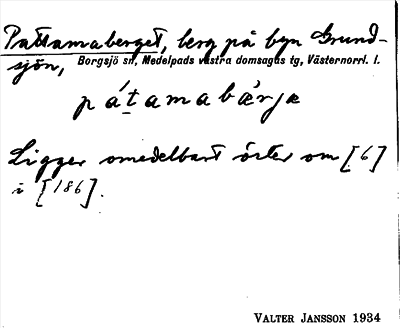 Pattamaberget, berg på byn Grund-
sjön, Borgsjö sn, Medelpads västra domsagas tg, Västernorrl. l.
pátamabærjæ
Ligger omedelbart öster om [6]
i [186].
VALTER JANSSON 1934